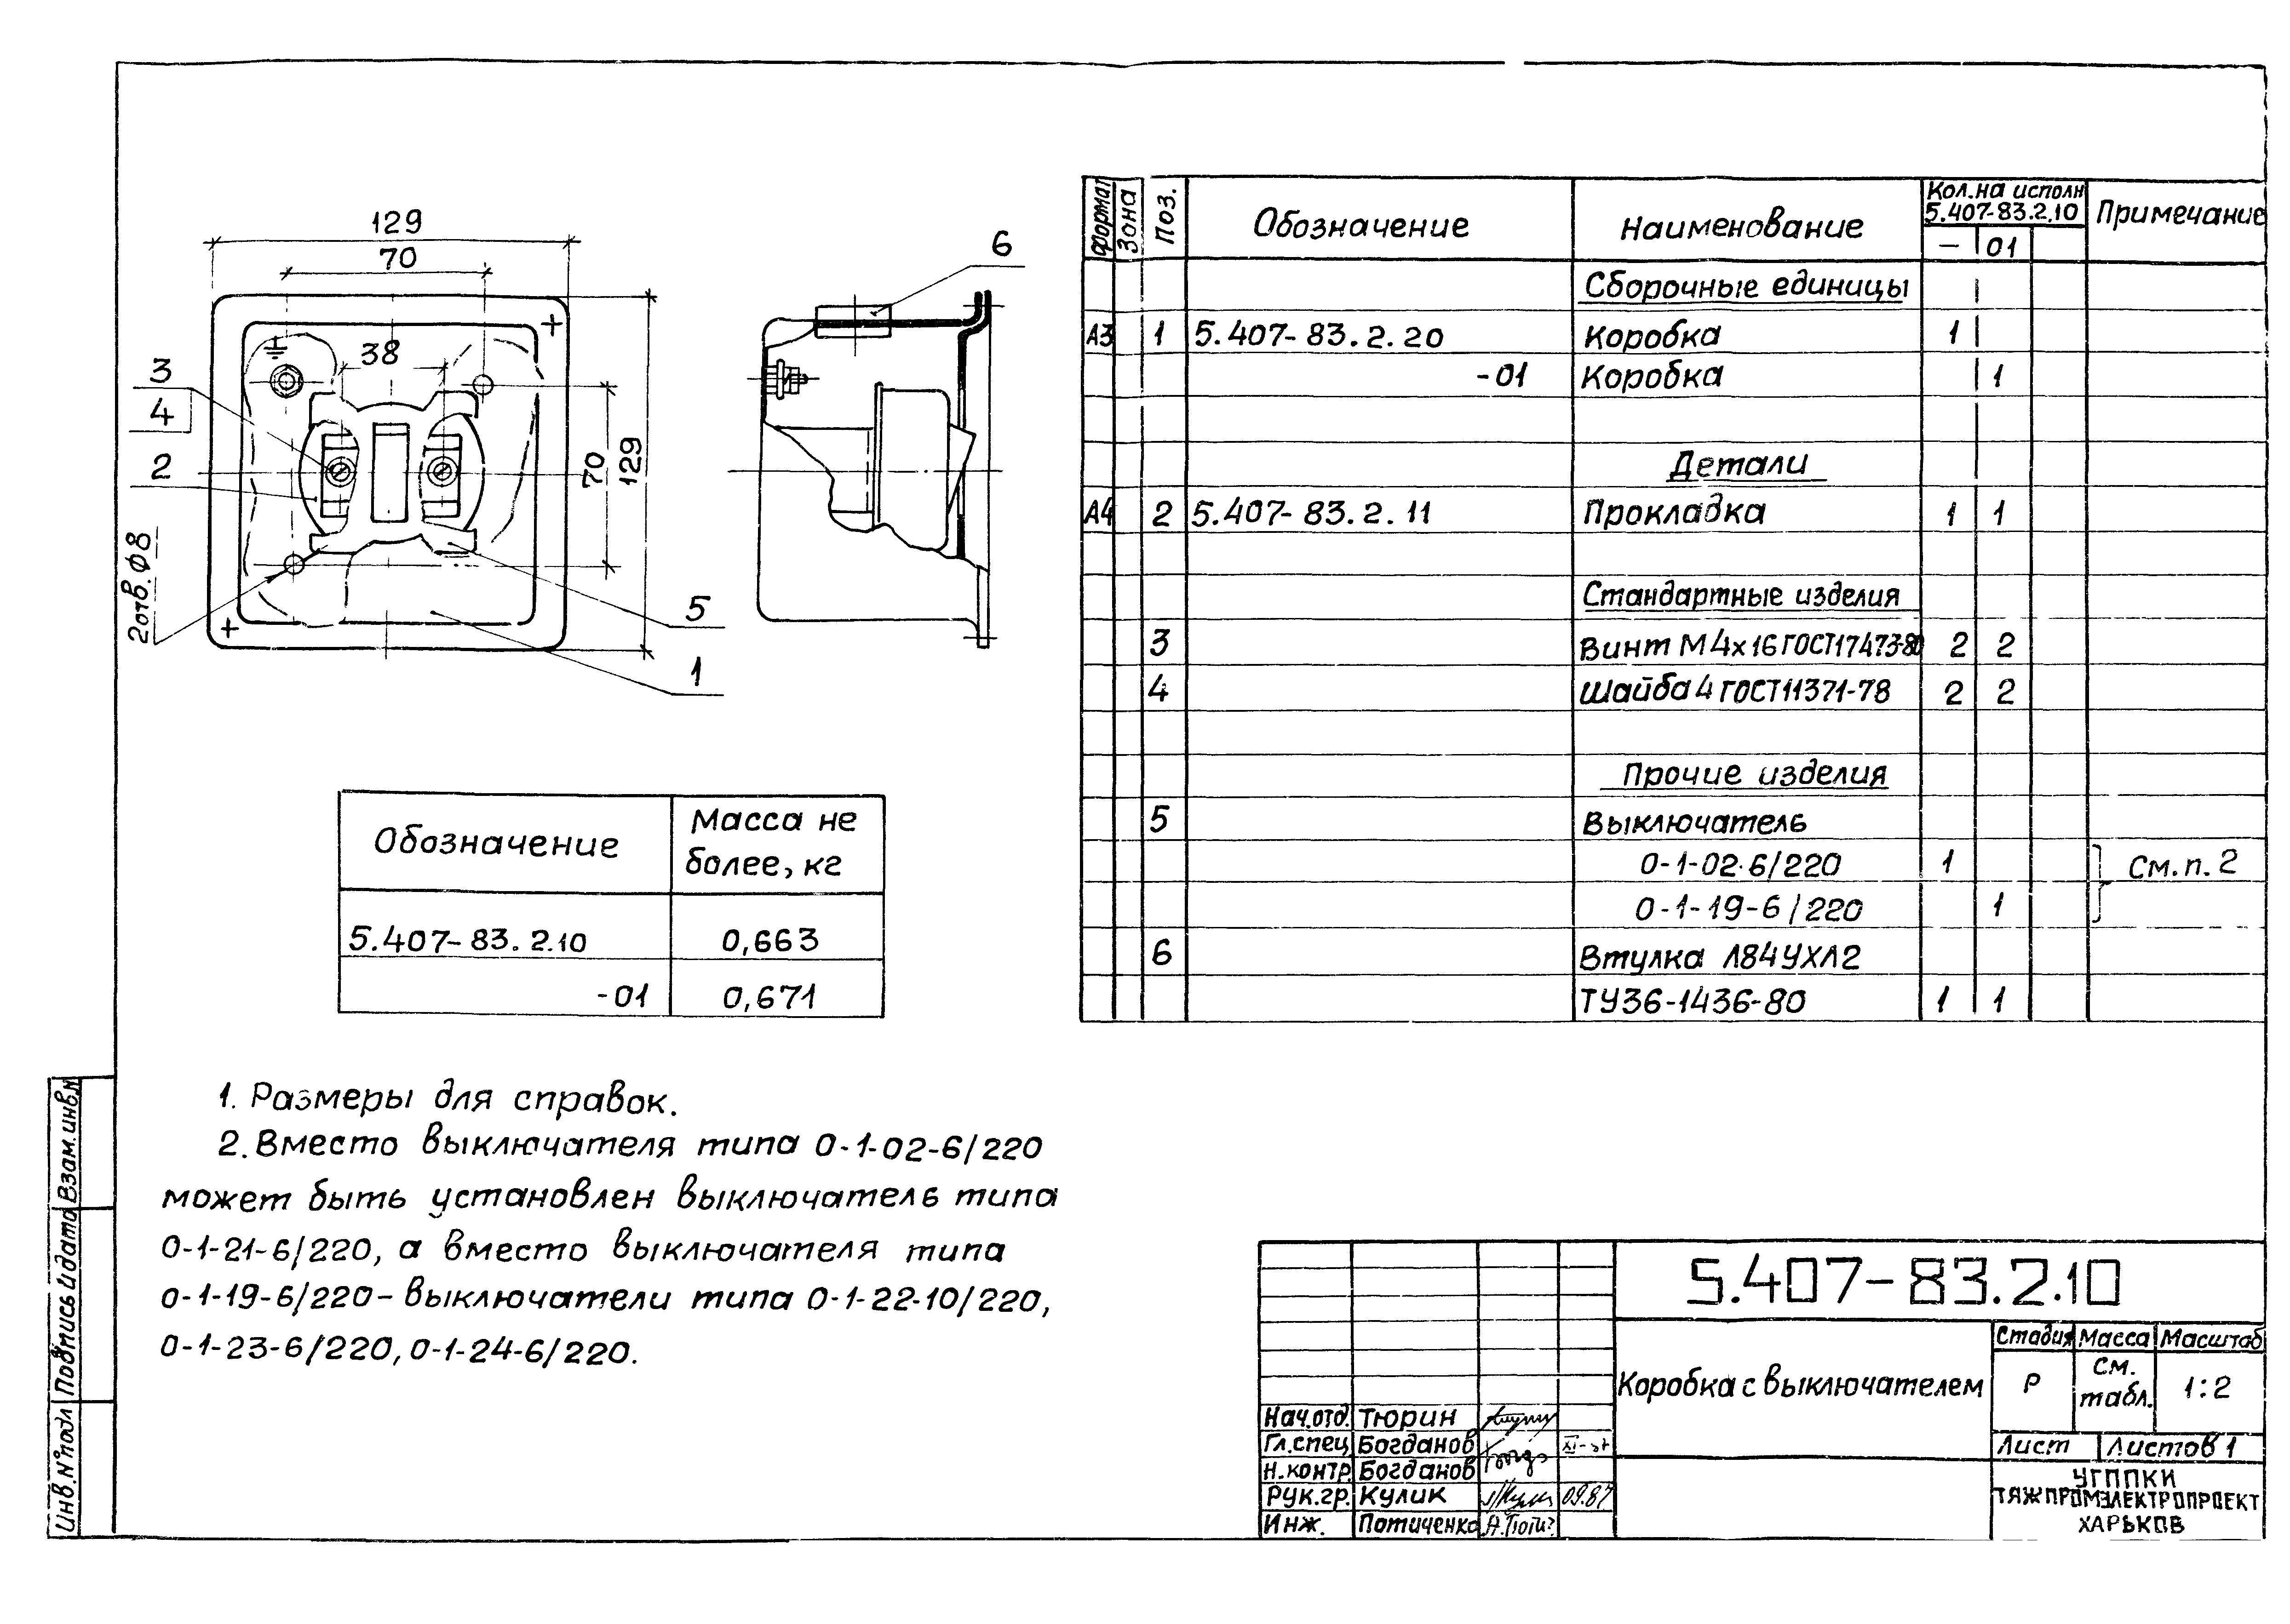 129
70
38
3
4
2
2отв. Ø8
70
129
5
1
6
Формат Зона Поз. Обозначение Наименование Кол.на исполн 5.407-83.2.10 Примечание
– 01
Сборочные единицы
А3 1 5.407-83.2.20 Коробка 1
-01 Коробка 1
Детали
А4 2 5.407-83.2.11 Прокладка 1 1
Стандартные изделия
3 Винт М4х16 ГОСТ17473-80 2 2
4 Шайба 4 ГОСТ11371-78 2 2
Прочие изделия
5 Выключатель
0-1-02-6/220 1 См. п. 2
0-1-19-6/220 1
6 Втулка Л84УХЛ2
ТУ36-1436-80 1 1
Обозначение Масса не
более, кг
5.407-83.2.10 0,663
-01 0,671
1. Размеры для справок.
2. Вместо выключателя типа 0-1-02-6/220
может быть установлен выключатель типа
0-1-21-6/220, а вместо выключателя типа
0-1-19-6/220 – выключатели типа 0-1-22-10/220,
0-1-23-6/220, 0-1-24-6/220.
Взам.инв.№
Подпись и дата
Инв.№подл
5.407-83.2.10
Коробка с выключателем
Стадия Масса Масштаб
Р См. табл. 1:2
Лист Листов 1
УГППКИ
ТЯЖПРОМЭЛЕКТРОПРОЕКТ
ХАРЬКОВ
Нач.отд. Тюрин
Гл.спец. Богданов XI-87
Н.контр. Богданов
Рук.гр. Кулик 09.87
Инж. Потиченко